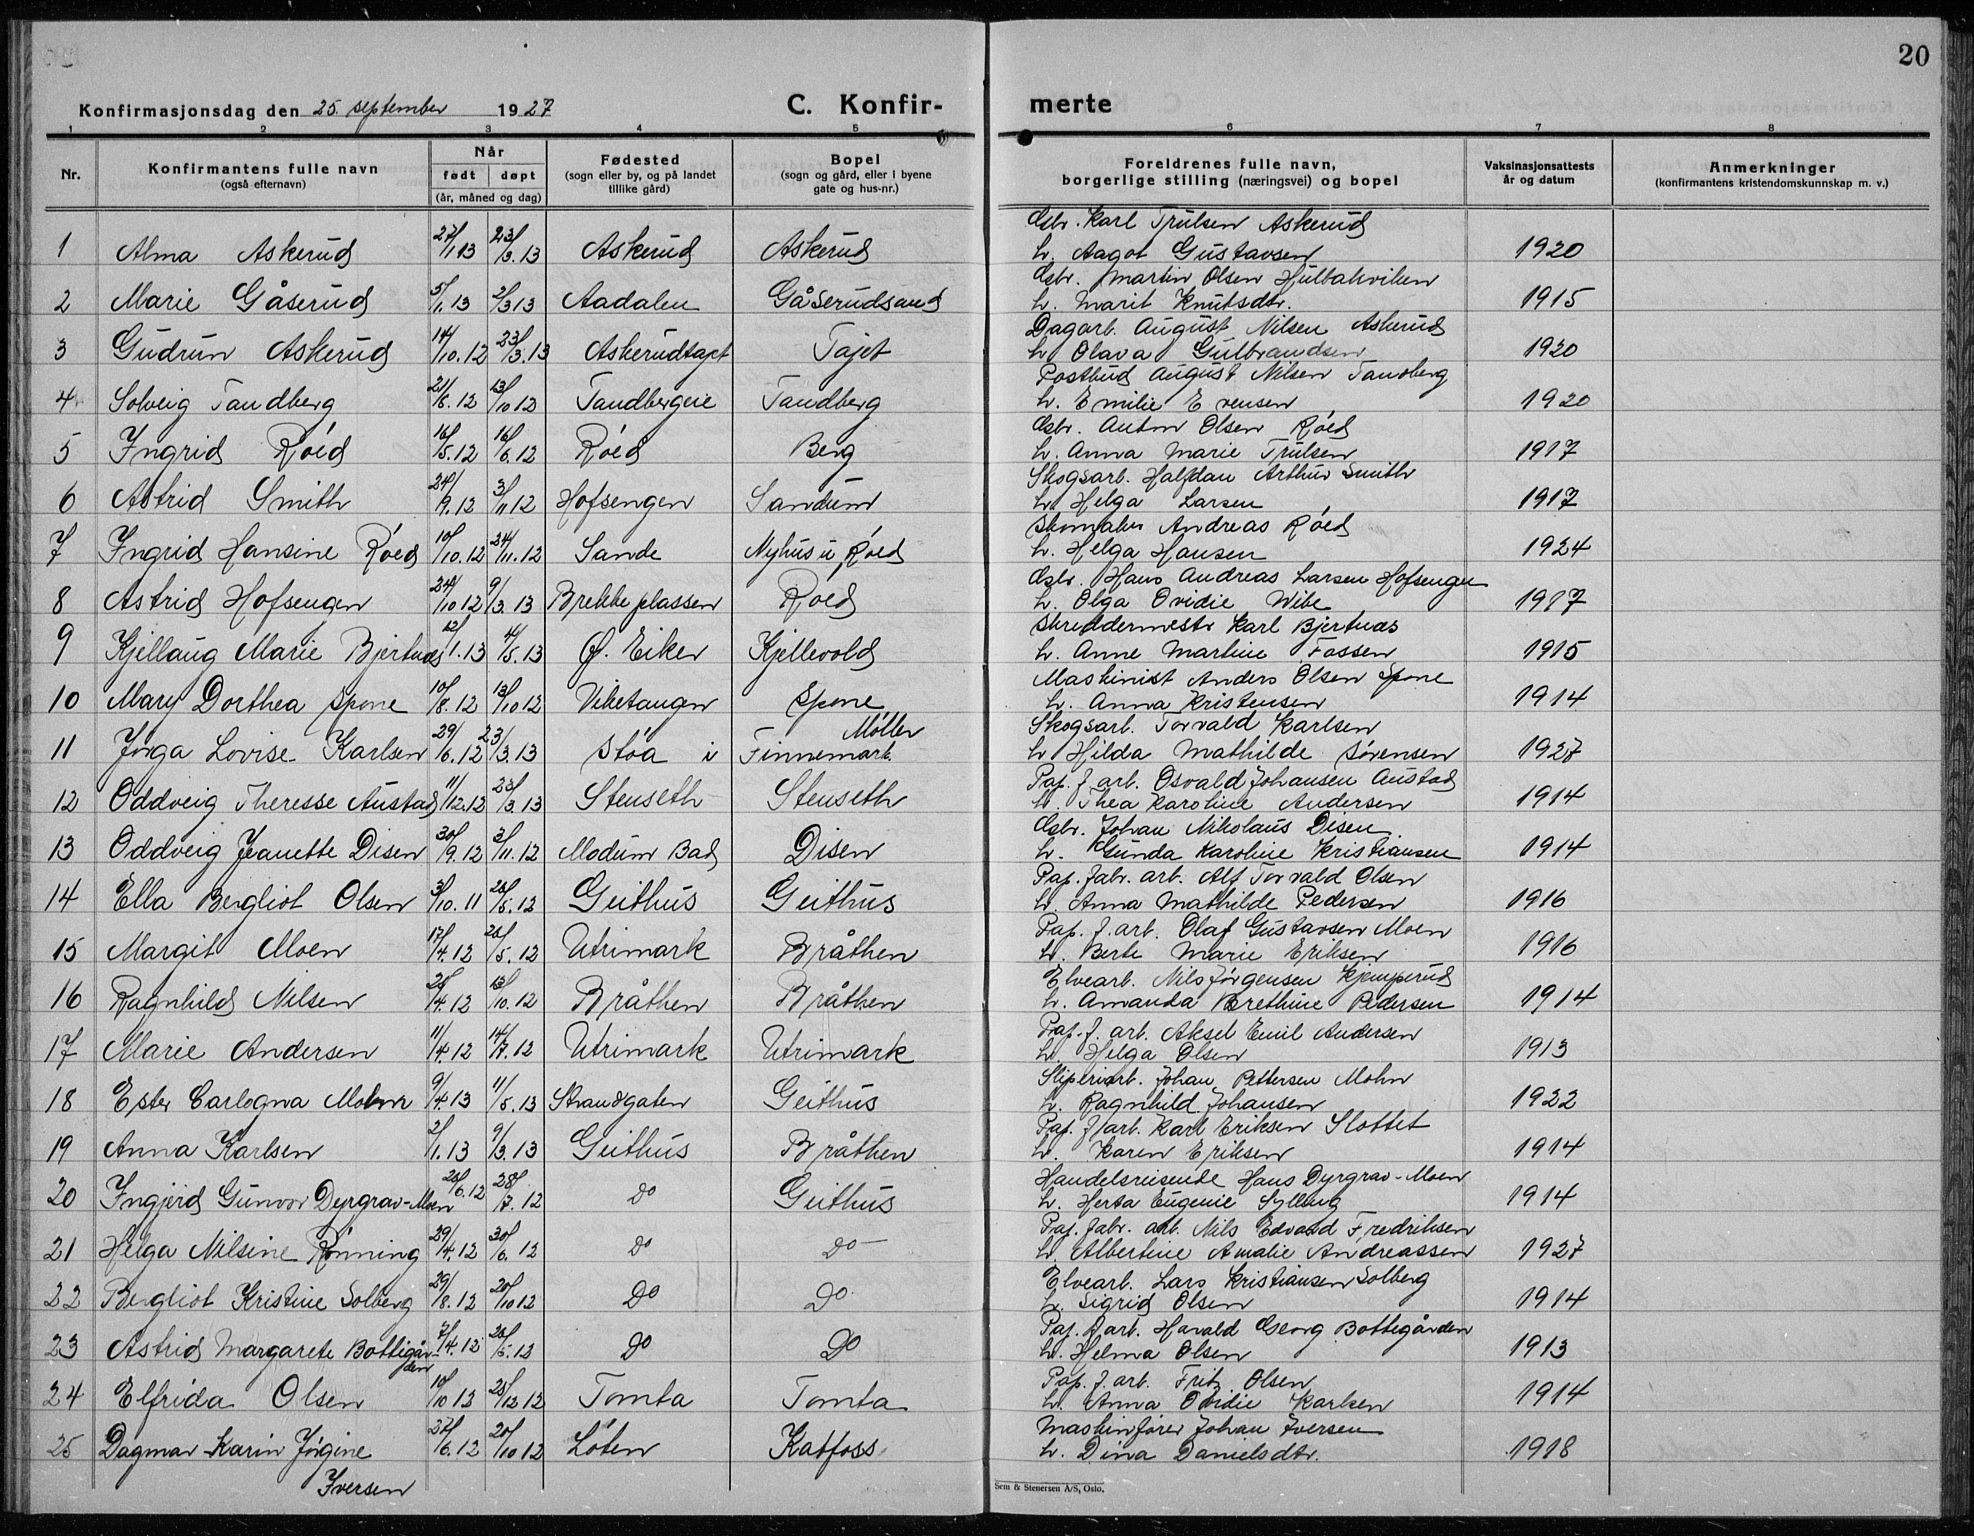 20
Konfirmasjonsdag den 25. september 1927 C. Konfir- merte
1 2 3 4 5 6 7 8
Nr. Konfirmantens fulle navn (også efternavn) Når født døpt (år, måned og dag) Fødested (sogn eller by, og på landet tillike gård) Bopel (sogn og gård, eller i byene gate og hus-nr.) Foreldrenes fulle navn, borgerlige stilling (næringsvei) og bopel Vaksinasjonsattests år og datum Anmerkninger (konfirmantens kristendomskunnskap m. v.)
Gbr. Karl Trulsen Askerud
1 Alma Askerud 27/1 13 23/3. 13 Askerud Askerud h. Aagot Gustavsen 1920
Gbr. Martin Olsen Hulbakviken
2 Marie Gåserud 5/1. 13 2/3 13 Aadalen Gåserudsand h. Marit Knutsdtr. 1915
Dagarb. August Nilsen Askerud
3 Gudrun Askerud 14/10. 12 23/3. 13 Askerudtajet Tajet h. Olava Gulbrandsen 1920
Postbud August Nilsen Tandberg
4 Solveig Tandberg 21/6. 12 13/10 12 Tandbergeie Tandberg h. Emilie Evensen 1920
Gbr. Anton Olsen Røed
5 Ingrid Røed 16/5. 12 16/6. 12 Røed Berg h. Anna Marie Trulsen 1917
Skogsarb. Halfdan Arthur Smith
6 Astrid Smith 24/9. 12 3/11 12 Hofsengen Sandum h. Helga Larsen 1917
Skomaker Andreas Røed
7 Ingrid Hansine Røed 10/10. 12 24/11. 12 Sande Nyhus u. Røed h. Helga Hansen 1924
Gbr. Hans Andreas Larsen Hofsengen
8 Astrid Hofsengen 24/10 12 9/3. 13 Brekkeplassen Røed h. Olga Ovidie Wibe 1917
Skreddermestr Karl Bjertnæs
9 Kjellaug Marie Bjertnæs 12/1. 13 4/5. 13 Ø. Eiker Kjellevold h. Anne Martine Fossen 1915
Maskinist Anders Olsen Spone
10 Mary Dorthea Spone 10/8. 12 13/10 12 Viketangen Spone h. Anna Kristensen 1914
Møller Skogsarb. Torvald Karlsen
11 Jørga Lovise Karlsen 29/6. 12 23/3. 13 Støa i Finnemark. h. Hilda Mathilde Sørensen 1927
Pap. f. arb. Osvald Johansen Austad
12 Oddveig Theresse Austad 11/12. 12 23/3. 13 Stenseth Stenseth h. Thea Karoline Andersen 1914
Gbr. Johan Nikolaus Disen
13 Oddveig Jeanette Disen 30/9. 12 3/11. 12 Modum Bad Disen h. Gunda Karoline Kristiansen 1914
Pap. fabr. arb. Alf Torvald Olsen
14 Ella Bergliot Olsen 3/10. 11 26/5. 12 Geithus Geithus h. Anna Mathilde Pedersen 1916
Pap. f. arb. Olaf Gustavsen Moen
15 Margit Moen 17/4. 12 26/5. 12 Utrimark Bråthen h. Berte Marie Eriksen 1916
Elvearb. Nils Jørgensen Kjemperud
16 Ragnhild Nilsen 26/4. 12 13/10. 12 Bråthen Bråthen h. Amanda Brethine Pedersen 1914
Pap. f. arb. Aksel Emil Andersen
17 Marie Andersen 11/4. 12 14/7. 12 Utrimark Utrimark h. Helga Olsen 1913
Sliperiarb. Johan Pettersen Mohn
18 Ester Carlogna Mohn 9/4. 13 11/5. 13 Strandgaten Geithus h. Ragnhild Johansen 1922
Pap. f. arb. Karl Eriksen Slottet
19 Anna Karlsen 2/1. 13 9/3. 13 Geithus Bråthen h. Karen Eriksen 1914
Handelsreisende Hans Dyrgrav-Moen
20 Ingjerd Gunvor Dyrgrav-Moen 26/6. 12 28/7. 12 Do Geithus h. Herta Eugenie Sylling 1914
Pap. fabr. arb. Nils Edvard Fredriksen
21 Helga Nilsine Rønning 29/4. 12 30/6. 12 Do Do h. Albertine Amalie Andreassen 1927
Elvearb. Lars Kristiansen Solberg
22 Bergliot Kristine Solberg 29/8. 12 20/10 12 Do Do h. Sigrid Olsen 1914
Pap. f. arb. Harald Georg Bottegården
23 Astrid Margarete Bottegår-den 7/4. 12 26/5. 12 Do Do h. Helma Olsen 1913
Pap. f. arb. Fritz Olsen
24 Elfrida Olsen 10/10 12 25/12 12 Tomta Tomta h. Anna Ovidie Karlsen 1914
Maskinfører Johan Iversen
25 Dagmar Karin Jørgine 27/6. 12 20/10 12 Løten Katfoss h. Dina Danielsdtr. 1918
Iversen
Sem & Stenersen A/S, Oslo.